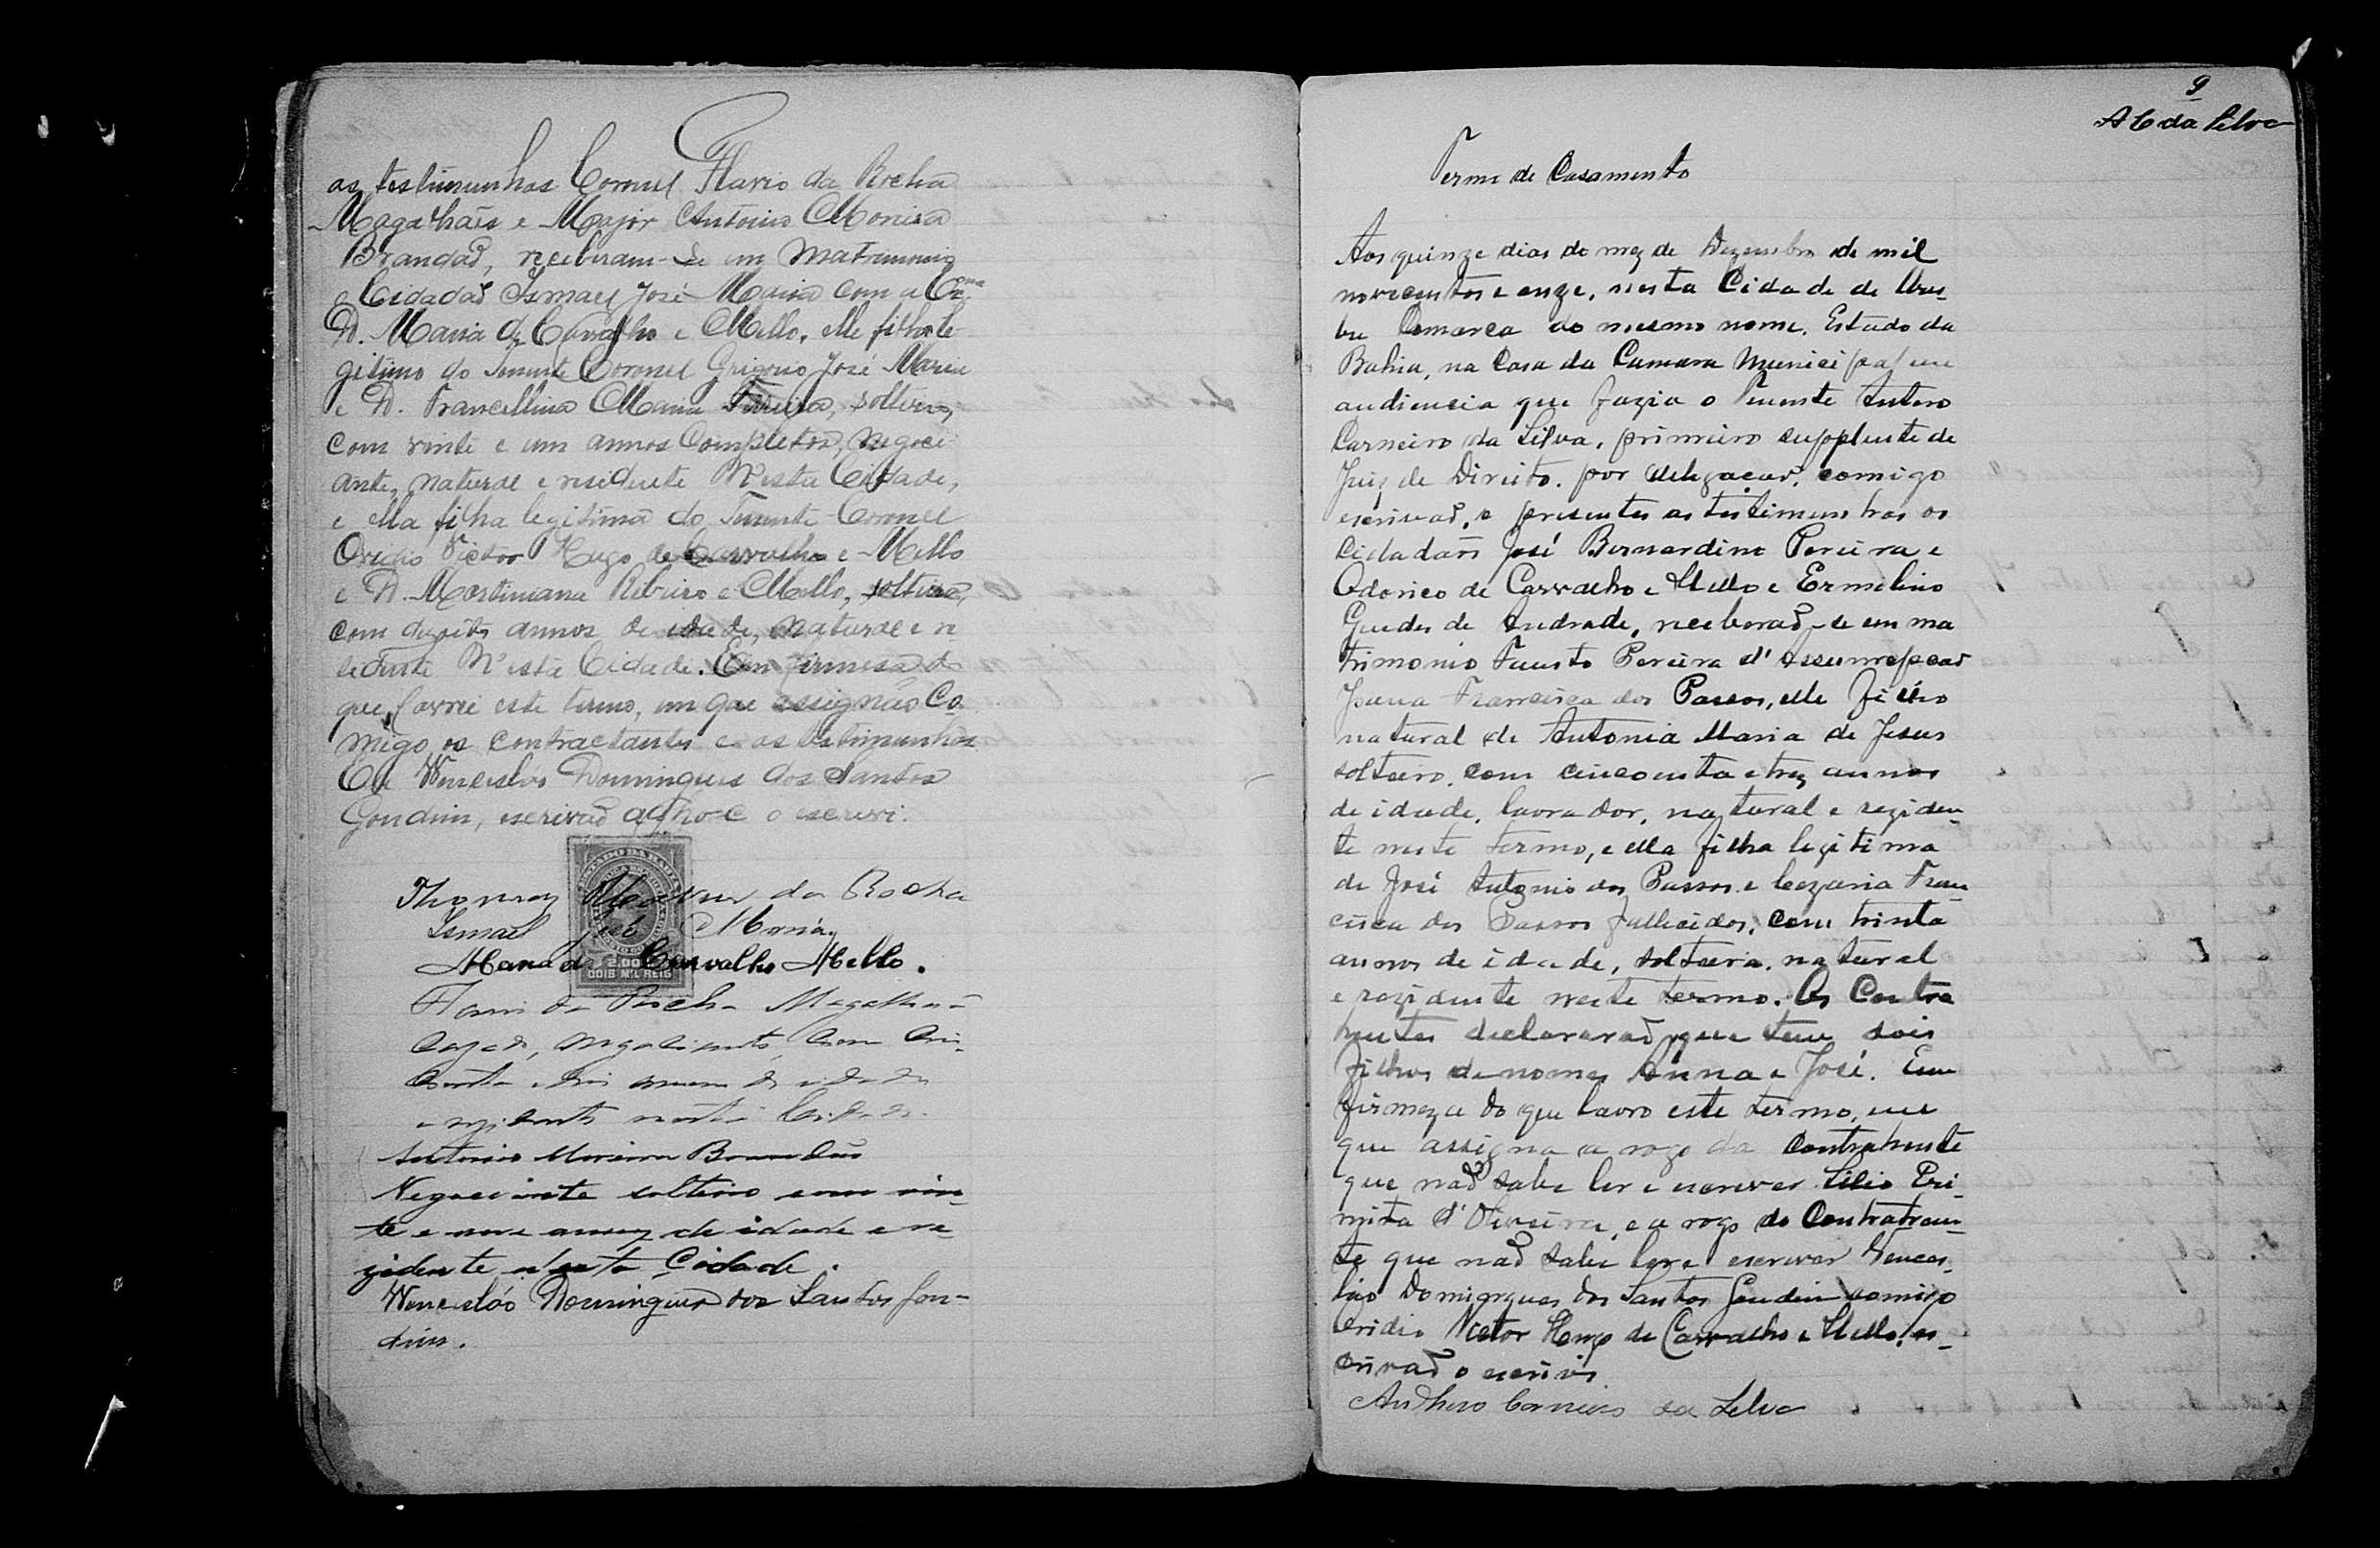 as testimunhas Coronel Flavio da Rocha
Magalhães e Major Antonio Moreira
Brandaõ, receberam-se em matrimonio
o Cidadaõ Ismael José Maria com a Exma
D. Maria de Carvalho e Mello, elle filho le-
gitimo do Tenente Coronel Grigorio José Maria
e D. Francellina Maria Ferreira, solteiro,
com vinte e um annos completos, negoci-
ante, natural e residente N'esta Cidade,
e ella filha legitima do Tenente-Coronel
Ovidio Victor Hugo de Carvalho e Mello
e D. Martiniana Ribeiro e Mello, solteira,
com dezoito annos de idade, natural e re
sidente N'esta Cidade. Em firmesa do
que, lavrei este termo, em que assignão Co-
migo os contractantes e as testimunhas
Eu Wencesláo Domingues dos Santos
Gondim, escrivaõ ad hoc o escrevi.
ESTADO DA BAHIA
2.000
DOIS MIL REIS
Thomaz da Rocha
Ismael José Maria
Maria de Carvalho Mello.
Flavio da Rocha Magalhães
Cazado, Negociante, com
e dois annos de idade
e rezidente nesta Cidade.
Antonio Moreira Brandão
Negociante solteiro com vin-
te e nove annos de idade e re-
zidente nesta Cidade.
Wenceslóo Domingues dos Santos Gon-
dim.
9
A C da Silva
Termo de Casamento
Aos quinze dias do mez de Dezembro de mil
novecentos e onze, nesta Cidade de Uru-
bu Comarca do mesmo nome, Estado da
Bahia, na Casa da Camara Municipal em
audiencia que fazia o Tenente Antero
Carneiro da Silva, primeiro supplente de
Juiz de Direito, por delegaçaõ, comigo
escrivaõ, e presentes as testimunhas os
Cidadaõs José Bernardino Pereira e
Odorico de Carvalho e Mello e Ermelino
Guedes de Andrade, receberaõ-se em ma
trimonio Fausto Pereira d'Assumpçaõ
Joanna Francisca dos Passos, elle filho
natural de Antonia Maria de Jesus
solteiro, com cincoenta e trez annos
de idade, lavrador, natural e reziden-
te neste termo, e ella filha legitima
de José Antonio dos Passos e Cezaria Fran-
cisca dos Passos fallecidos, com trinta
annos de idade, solteira, natural
e rezidente neste termo. Os Contra
hentes declararaõ que tem dois
filhos de nomes Anna e José. Em
firmeza do que lavro este termo, em
que assigna a rogo da Contrahente
que naõ sabe ler e escrever
d'Oliveira, e a rogo do Contrahen-
te que naõ sabe ler e escrever Wences-
láo Domingues dos Santos Gondim comigo
Ovidio Victor Hugo de Carvalho e Mello, es-
crivaõ o escrivi
Anthero Carneiro da Silva